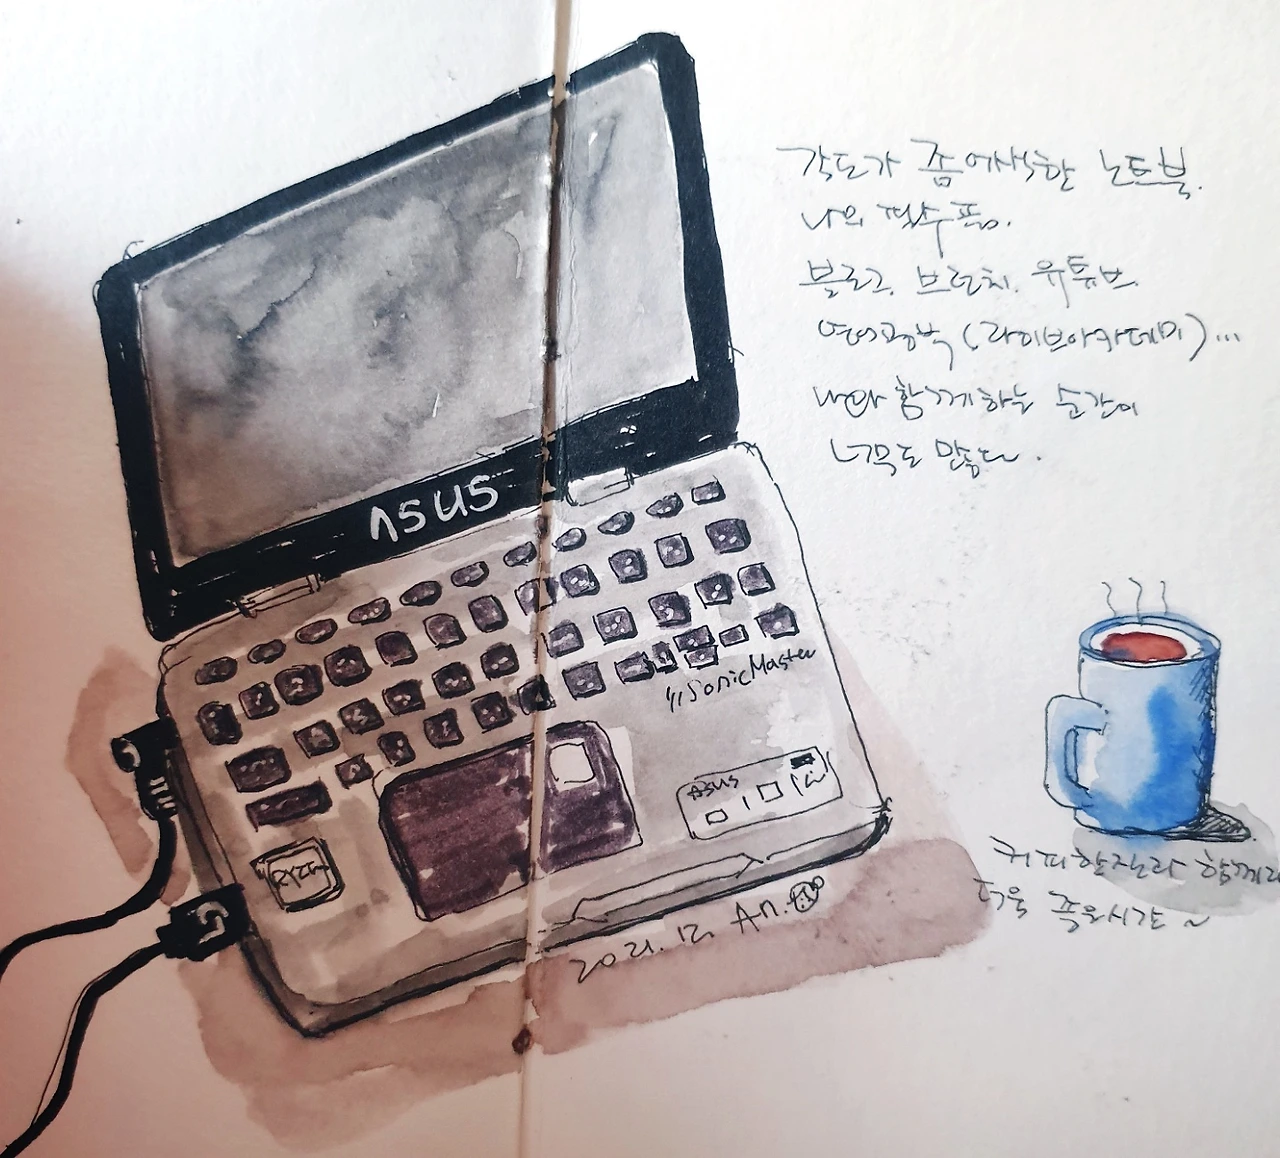 각도가 좀 어색한 노트북.
나의 필수품.
블로그, 브런치, 유튜브
영어공부 (라이브아카데미)...
나와 함께하는 순간이
너무도 많다.
ASUS
SonicMaster
ASUS
RYZEN
2021. 12. An.
커피한잔과 함께라
더욱 좋은시간 ~